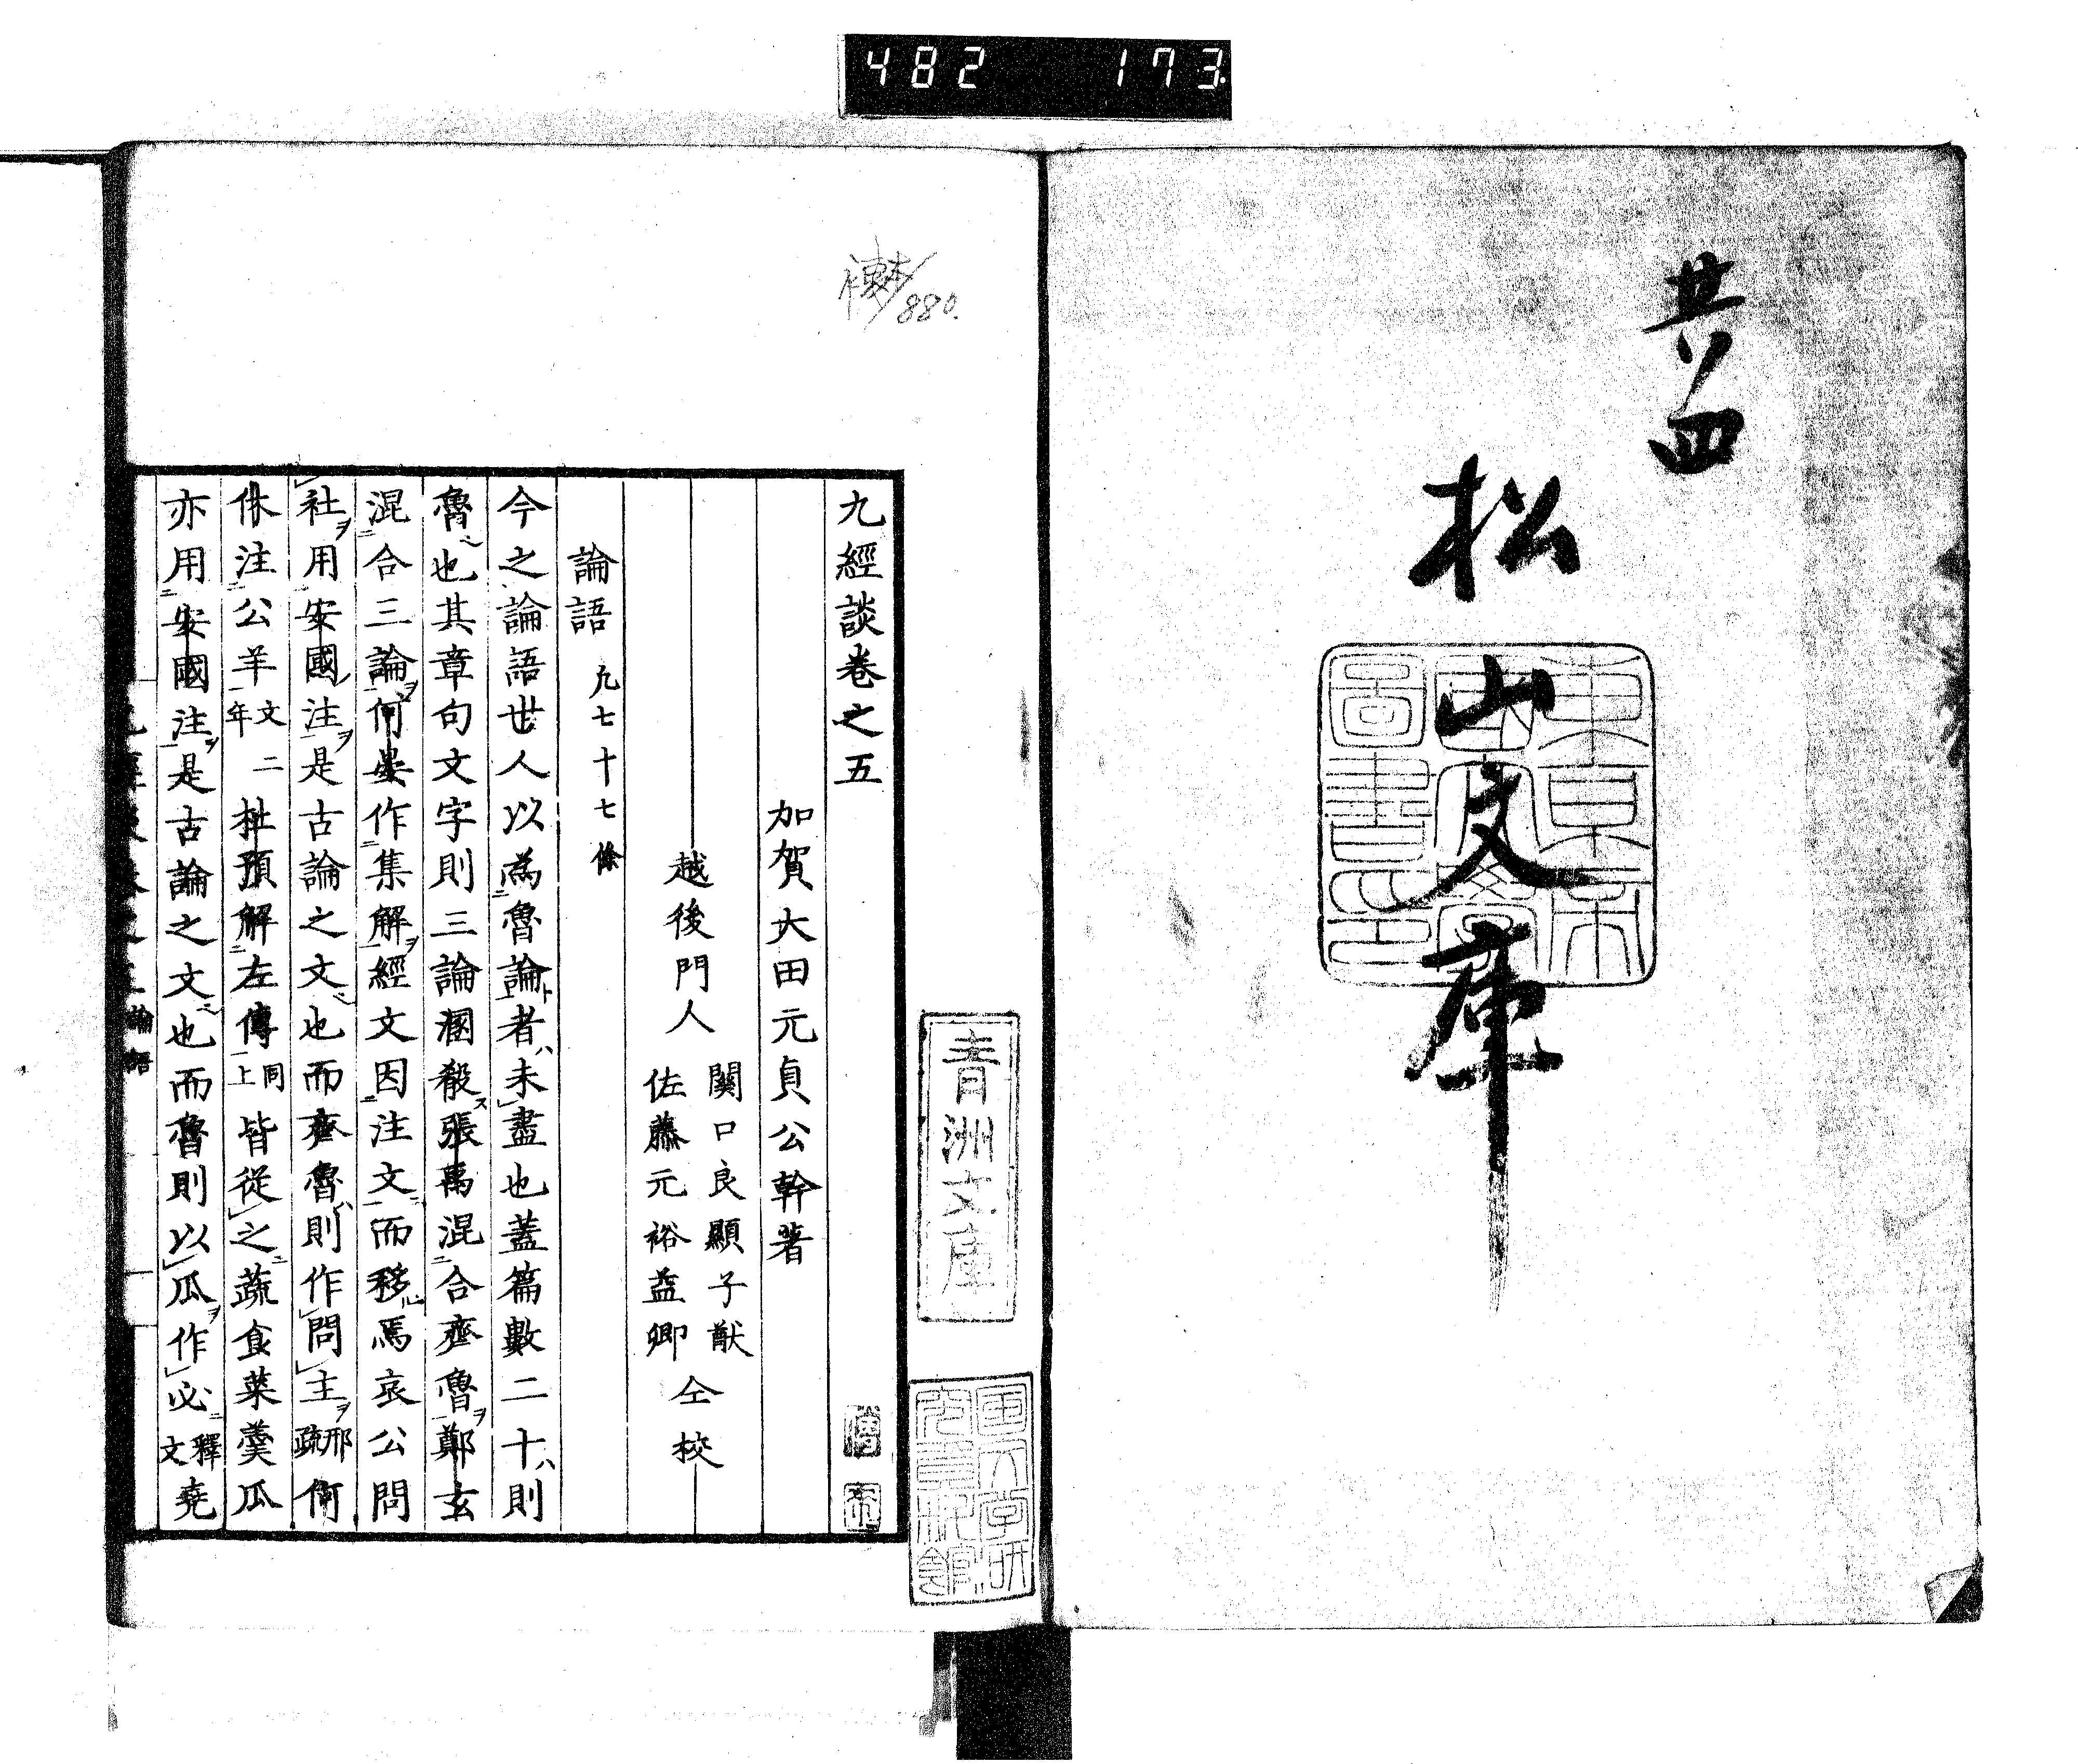 482 173
共四
松山文庫
東京帝
國大學
圖書印
880.
青洲文庫
九經談卷之五
加賀大田元貞公幹著
越後門人
關口良顯子猷
佐藤元裕益卿
仝校
論語 九七十七條
今之論語世人以爲魯論者未盡也蓋篇數二十則
魯也其章句文字則三論溷殽張禹混合齊魯鄭玄
混合三論何晏作集解經文因注文而移焉哀公問
社用安國注是古論之文也而齊魯則作問主邢疏何
休注公羊文二年杜預解左傳同上皆從之蔬食菜羹瓜
亦用安國注是古論之文也而魯則以瓜作必釋文堯
論語